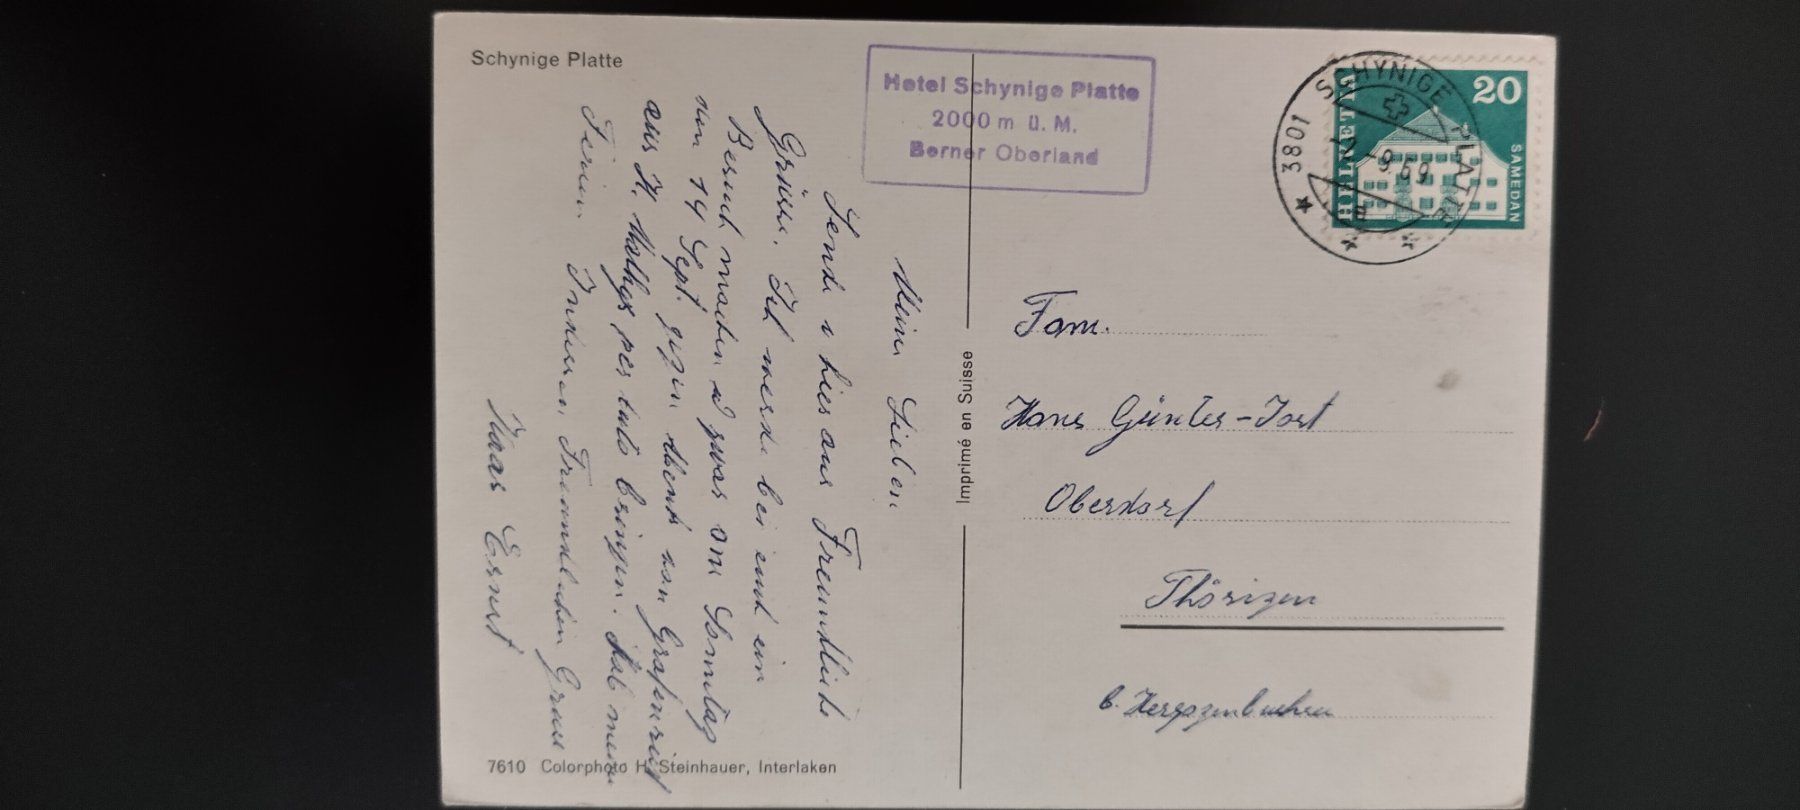 Schynige Platte
Hotel Schynige Platte
2000 m ü. M.
Berner Oberland
3801 SCHYNIGE PLATTE
-9.69
a
HELVETIA
20
SAMEDAN
Meine Lieben
Sende v hier aus Freundliche
Grüsse. Ich werde bei euch ein
Besuch machen u zwar am Sonntag
den 14 Sept. gegen Abend von Grafenried
aus H. Mathys per Auto bringen. Hab meine
Ferien. Inzwischen Freundlichen Gruss
Ernst
Imprimé en Suisse
Fam.
Hans Günter-Jost
Oberdorf
Thörigen
b. Herzogenbuchsee
7610 Colorphoto H. Steinhauer, Interlaken